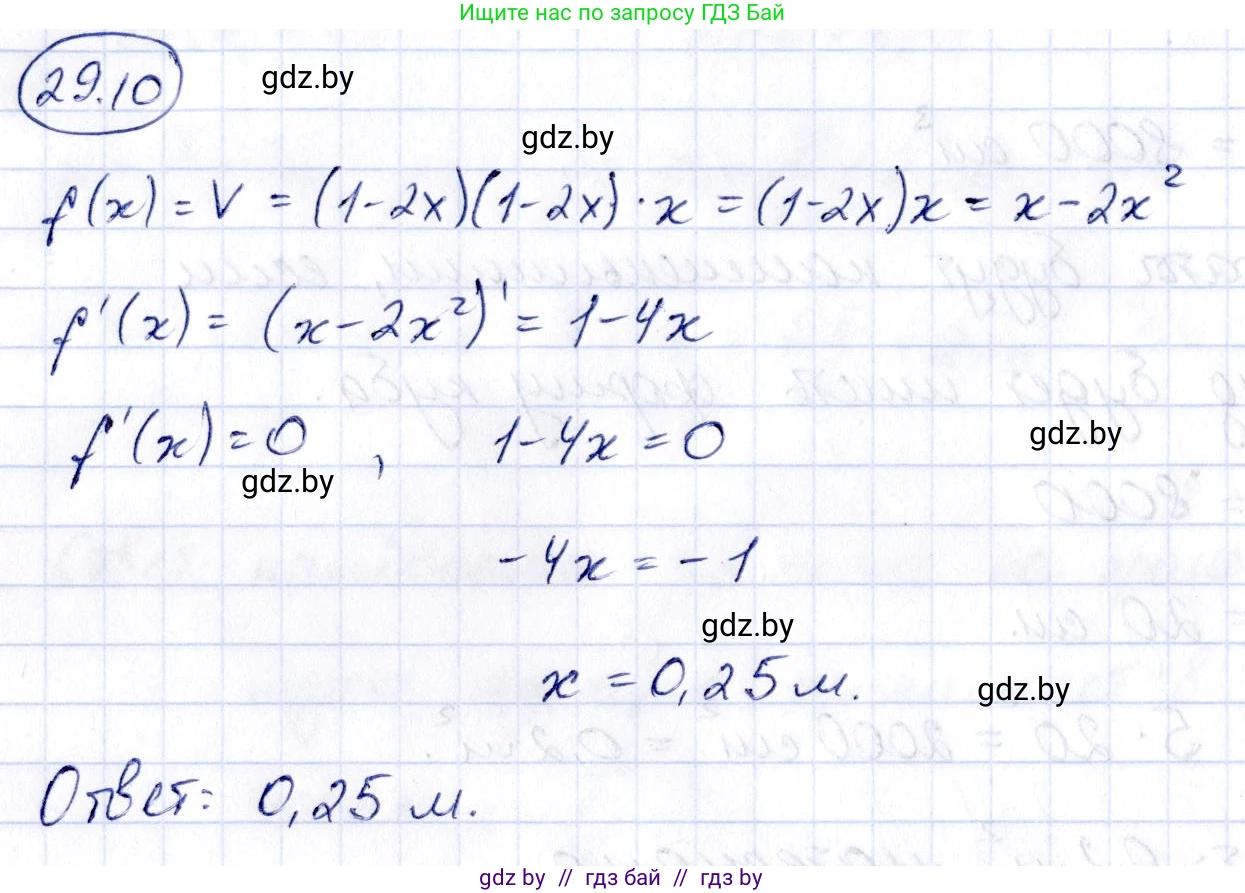 Ищите нас по запросу ГДЗ Бай
29.10
gdz.by
gdz.by
f(x) = V = (1-2x)(1-2x)·x = (1-2x)x = x-2x²
f'(x) = (x-2x²)' = 1-4x
f'(x) = 0, 1-4x = 0
gdz.by
gdz.by
-4x = -1
gdz.by
x = 0,25 м.
gdz.by
Ответ: 0,25 м.
gdz.by // гдз бай // гдз by